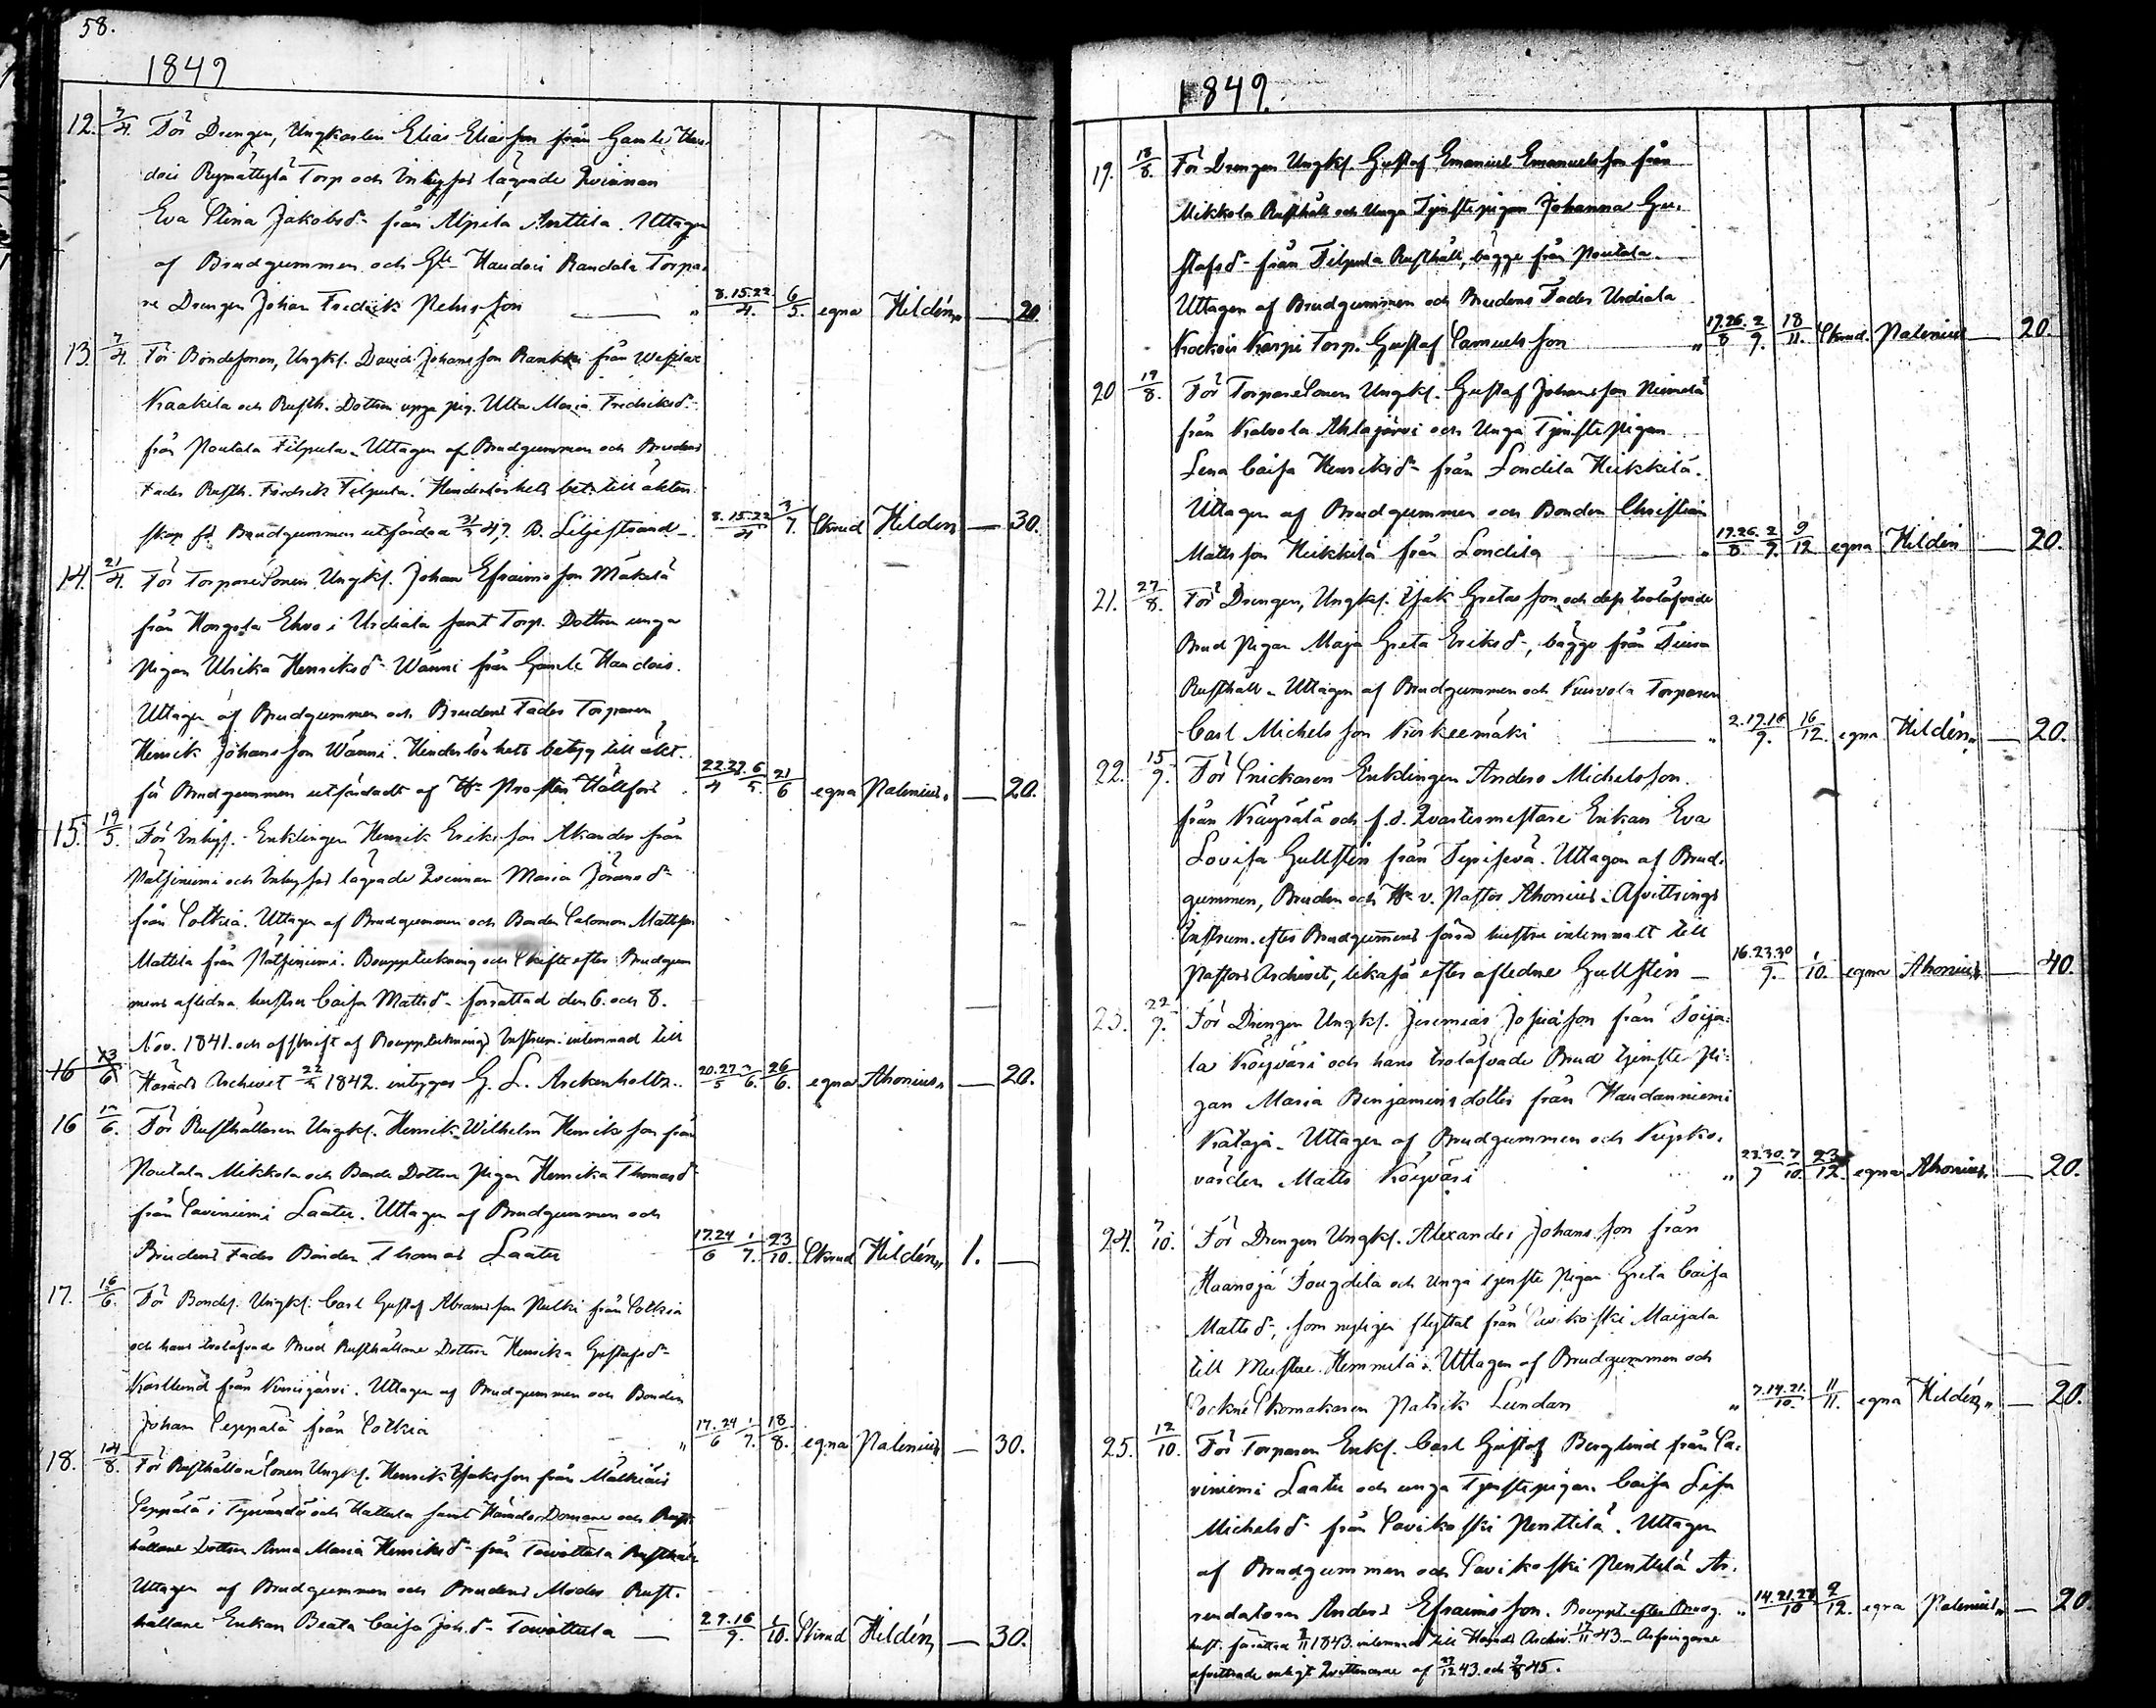 58.
1849
12. 7/4. För Drengen, Ungkarlen Elias Eliasson från Gamle Hau-
dois Rymättylä Torp och Inhyses lägrade Qvinnan
Eva Stina Jakobsdr från Alpela Anttila. Uttagen
af Brudgummen och Gle Haudois Randala Torpa-
re Drengen Johan Fredrik Pehrsson — " 8.15.22/4. 6/5. egna Hildén — 20.
13. 7/4. För Bondesonen, Ungk. David Johansson Rankki från
Kraakila och Rusth. Dottren unga pig. Ulla Maria Fredriksdr
från Poutala Filpula. Uttagen af Brudgummen och Brudens
Fader Rusth. Fredrik Filpula. Hinderlöshets bet. till äkten-
skap för Brudgummen utfärdad 47 Liljestrand — 8.15.22/4 3/7. Skrud Hildén — 30.
14. 21/4. För TorpareSonen Ungk. Johan Efraimsson Mäkelä
från Hongola Ehro i Urdiala samt Torp. Dottren unga
Pigan Ulrika Henriksdr Wänni från Gamle Haudois.
Uttagen af Brudgummen och Brudens Fader Torparen
Henrik Johansson Wänni. Hinderlöshets betyg till äkt.
för Brudgummen utfärdadt af Hr Prosten Hällfors 22.29/4 6/5. 21/6 egna Palenius — 20.
15. 19/5. För Inhys. Enklingen Henrik Eriksson Akander från
Pätsiniemi och Inhyses lägrade Qvinnan Maria Göransdr
från Sotkia. Uttagen af Brudgummen och Bonden Salomon Mattsson
Mattila från Pätsiniemi. Bouppteckning och Skifte efter Brudgum-
mens aflidna hustru Caisa Mattsdr förrättad den 6. och 8.
Nov. 1841. och afskrift af Boupptecknings Instrum. inlemnad till
16 13/6 Härads Archivet 1842. intygar G. L. Arckenholtz. 20.27/5 3/6. 26/6. egna Ahonius — 20.
16 /6. För Rusthållaren Ungk. Henrik Wilhelm Henriksson från
Poutala Mikkola och Bonde Dottren Pigan Henrika Thomasdr
från Saviniemi Laatu. Uttagen af Brudgummen och
Brudens Fader Bonden Thomas Laatu 17.24/6 1/7. 23/10. Skrud Hildén 1. —
17. 16/6. För Bondes. Ungk. Carl Gustaf Abramsson Pulki från Sotkia
och hans trolofvade Brud Rusthållare Dottren Henrika Gustafsdr
Karllund från Kurisjärvi. Uttagen af Brudgummen och Bonden
Johan Seppälä från Sotkia " 17.24/6 1/7. 18/8. egna Palenius — 30.
18. 14/8. För RusthållareSonen Ungk. Henrik Isaksson från Mälkiäis
Seppälä i Tyrvändö och Hattula samt Härads Domare och Rust-
hållare Dottren Anna Maria Henriksdr från Towottula Rusthåll.
Uttagen af Brudgummen och Brudens Moder Rust-
hållare Enkan Beata Caisa Joh.dr Towottula — 2.9.16/9. 1/10. Skrud Hildén — 30.
1849.
19. 18/8. För Drengen Ungk. Gustaf Emanuel Emanuelsson från
Mikkola Rusthåll och Unga Tjenstepigan Johanna Gu-
stafsdr från Filpula Rusthåll, bägge från Poutala.
Uttagen af Brudgummen och Brudens Fader Urdiala
Kockois Karpi Torp. Gustaf Samuelsson " 19.26./8 2/9. 18/11. Skrud. Palenius — 20.
20 19/8. För TorpareSonen Ungk. Gustaf Johansson Niemelä
från Kalvola Ahlajärvi och Unga Tjenste Pigan
Lena Caisa Henriksdr från Sondila Heikkilä.
Uttagen af Brudgummen och Bonden Christian
Mattsson Heikkilä från Sondila — " 19.26./8. 2/9. 9/12 egna Hildén — 20.
21. 27/8. För Drengen, Ungk. Isak Gretasson och dess trolofvade
Brud Pigan Maja Greta Eriksdr, bägge från Tuisa
Rusthåll. Uttagen af Brudgummen och Kurvola Torparen
Carl Michelsson Korkeemäki — " 2.9.16/9. 16/12. egna Hildén — 20.
22. 15/9. För Snickaren Enklingen Anders Michelsson
från Käyrälä och f.d. Qvartermästare Enkan Eva
Lovisa Gullstén från Tepisevä. Uttagen af Brud-
gummen, Bruden och Hr v. Pastor Ahonius. Afvittrings
Instrum. efter Brudgummens förra hustru inlemnadt till
Pastors Archivet, likaså efter aflidne Gullstén — 16.23.30/9. 1/10. egna Ahonius — 40.
23. 22/9. För Drengen Ungk. Jeremias Josuason från Toija-
la Köyväri och hans trolofvade Brud tjenste Pi-
gan Maria Benjaminsdotter från Haudanniemi
Krataja. Uttagen af Brudgummen och Kyrko-
värden Matts Köyväri " 23.30./9 7/10. 23/12. egna Ahonius — 20.
24. 7/10. För Drengen Ungk. Alexander Johansson från
Haanoja Tougdila och Unga tjenste Pigan Greta Caisa
Mattsdr, som nyligen flyttat från Savikoski Maijala
till Mustue Hemmilä. Uttagen af Brudgummen och
Sockne Skomakaren Patrik Lundan " 7.14.21./10. 11/11. egna Hildén — 20.
25. 12/10. För Torparen Enkl. Carl Gustaf Berglind från Sa-
viniemi Laatu och unga Tjenstepigan Caisa Lisa
Michelsdr från Savikoski Penttilä. Uttagen
af Brudgummen och Savikoski Penttilä Ar-
rendatoren Anders Efraimsson. Bouppt. efter Brudg. " 14.21.28/10 9/12. egna Palenius — 20.
hust. förrättad 1843. inlemnad till Härads Archiv. 43. Arfvingarne
afvittrade enligt Qvittencerne af 43. och 45.